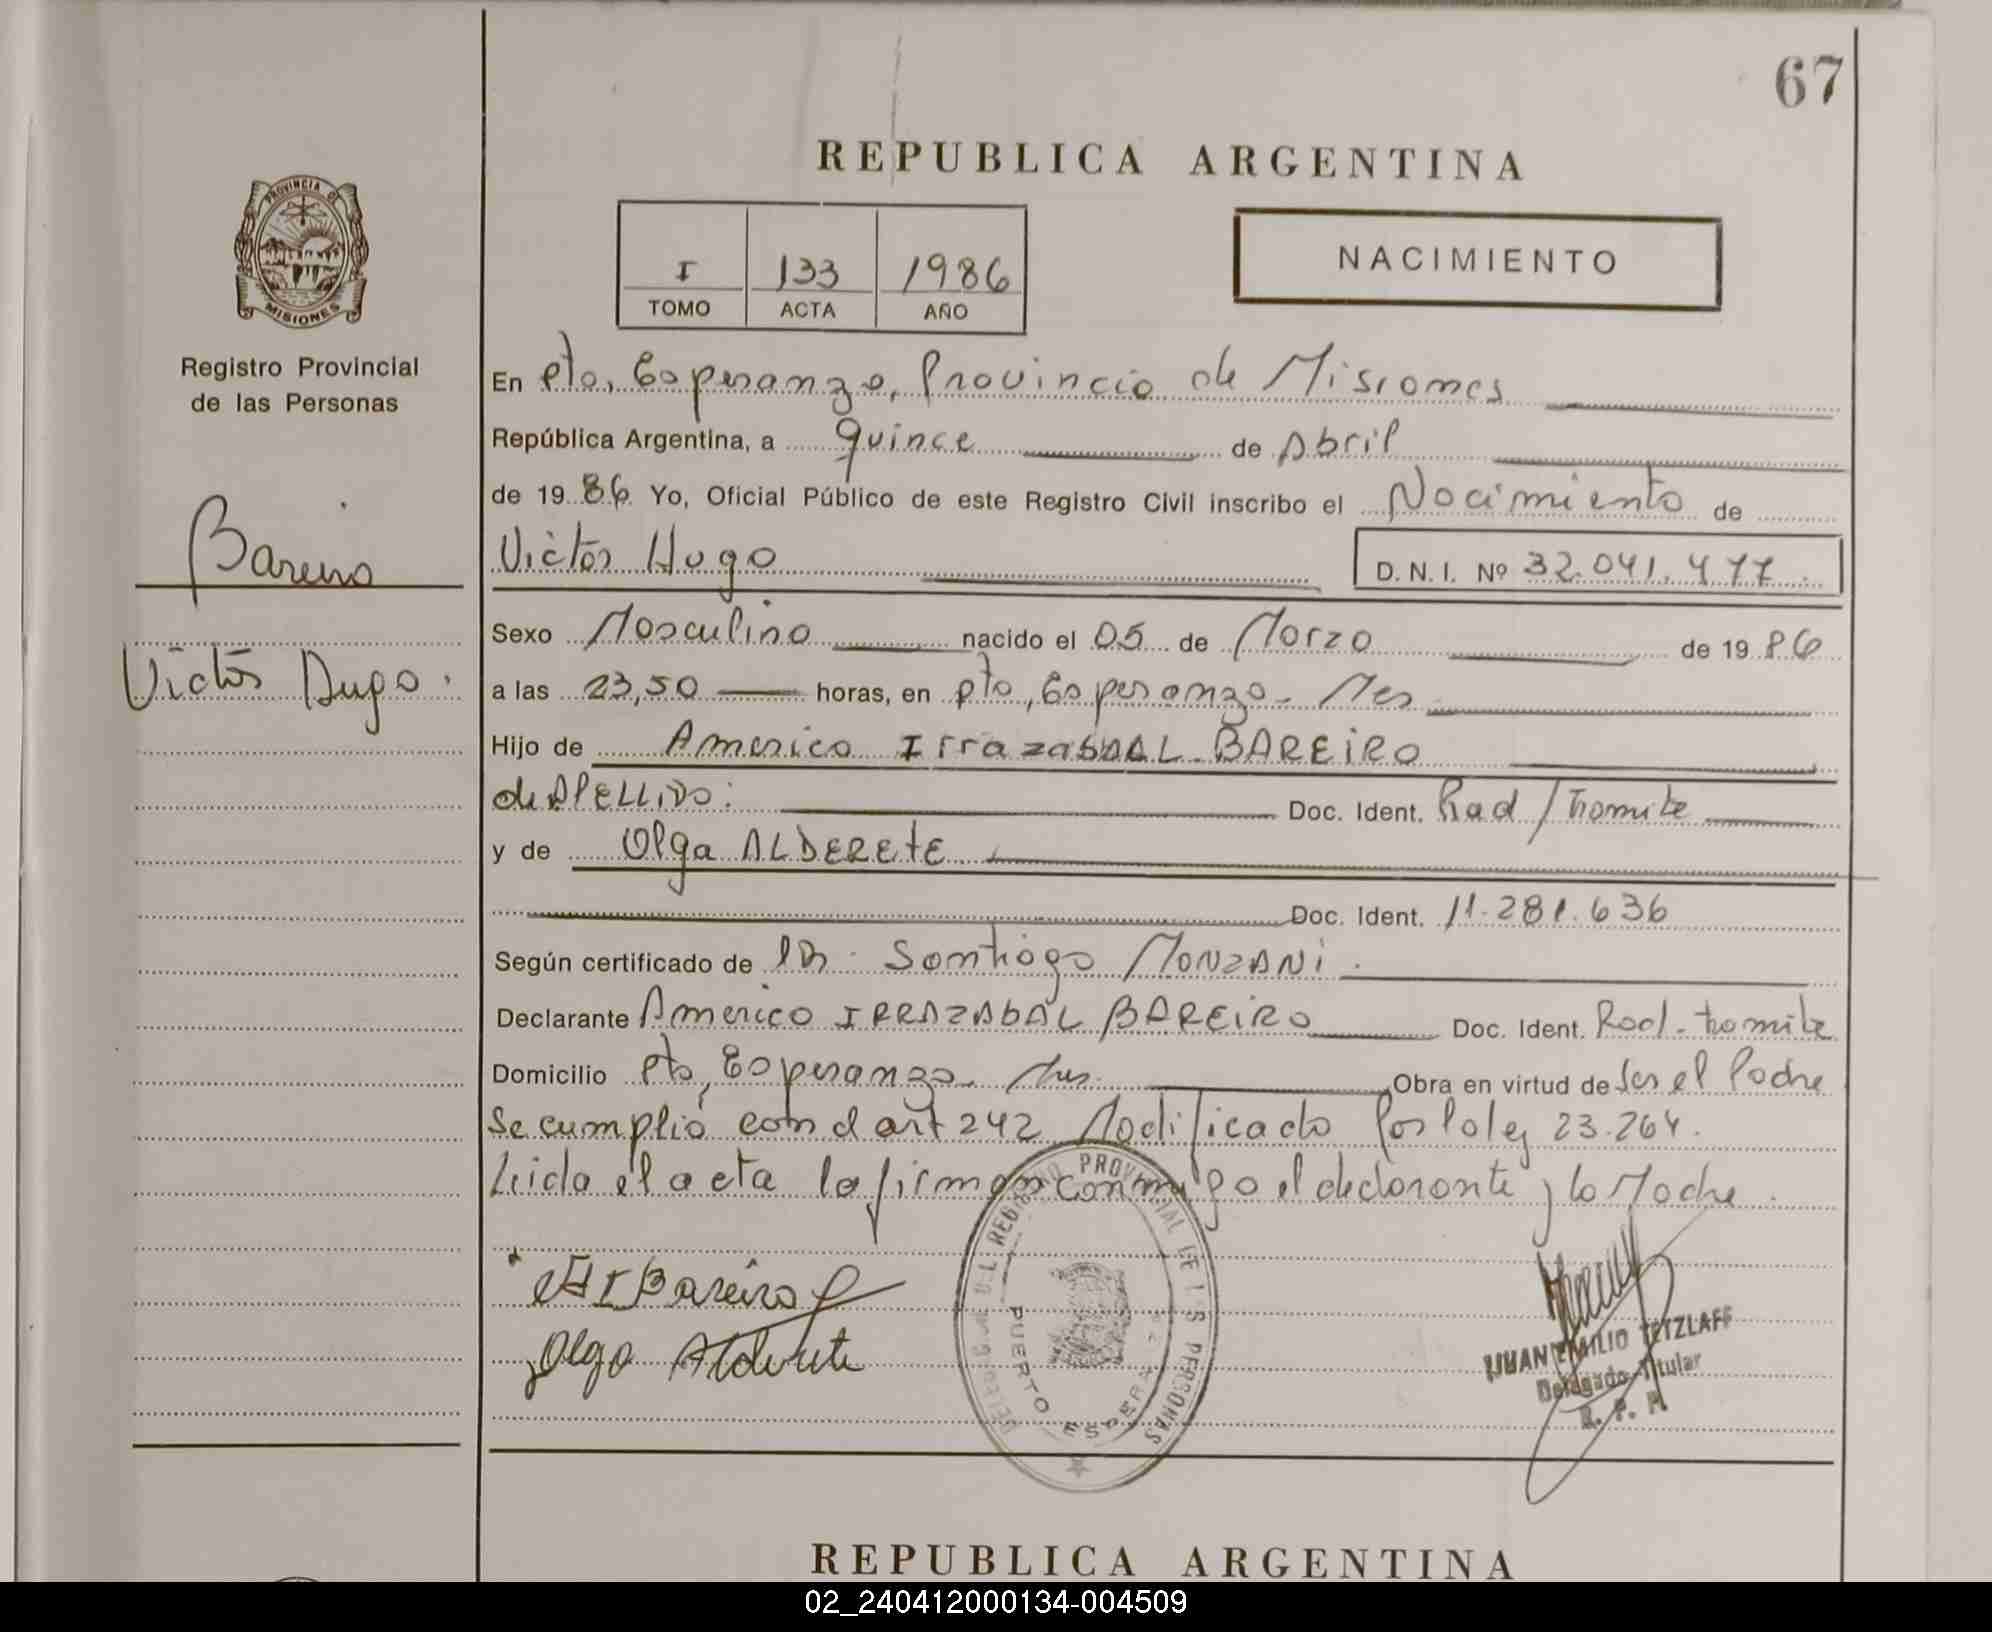 67
REPUBLICA ARGENTINA
PROVINCIA DE
MISIONES
Registro Provincial
de las Personas
Bareiro
Victor Hugo.
I 133 1986
TOMO ACTA AÑO
NACIMIENTO
En Pto. Esperanza, Provincia de Misiones
República Argentina, a quince de Abril
de 1986 Yo, Oficial Público de este Registro Civil inscribo el Nacimiento de
Victor Hugo D.N.I. Nº 32.041.477.
Sexo Masculino nacido el 05 de Marzo de 1986
a las 23,50 horas, en Pto, Esperanza - Mes
Hijo de Americo IrrazabAL BAREiRO
de APELLIDO: Doc. Ident. Rad/tramite
y de Olga ALDERETE
Doc. Ident. 11.281.636
Según certificado de Dr. Santiago MONZANi.
Declarante Americo IRRAZABAL BAREIRO Doc. Ident. Rad-tramite
Domicilio Pto, Esperanza - Obra en virtud de Ser el Padre
Se cumplió con el art 242 Modificado Por la ley 23.264.
Leida el acta la firman conmigo el declarante y la Madre.
A I Bareiro
Olga Alderete
DELEGACION DEL REGISTRO PROVINCIAL DE LAS PERSONAS
PUERTO ESPERANZA
JUAN EMILIO TETZLAFF
Delegado Titular
R. P. P.
REPUBLICA ARGENTINA
02_240412000134-004509